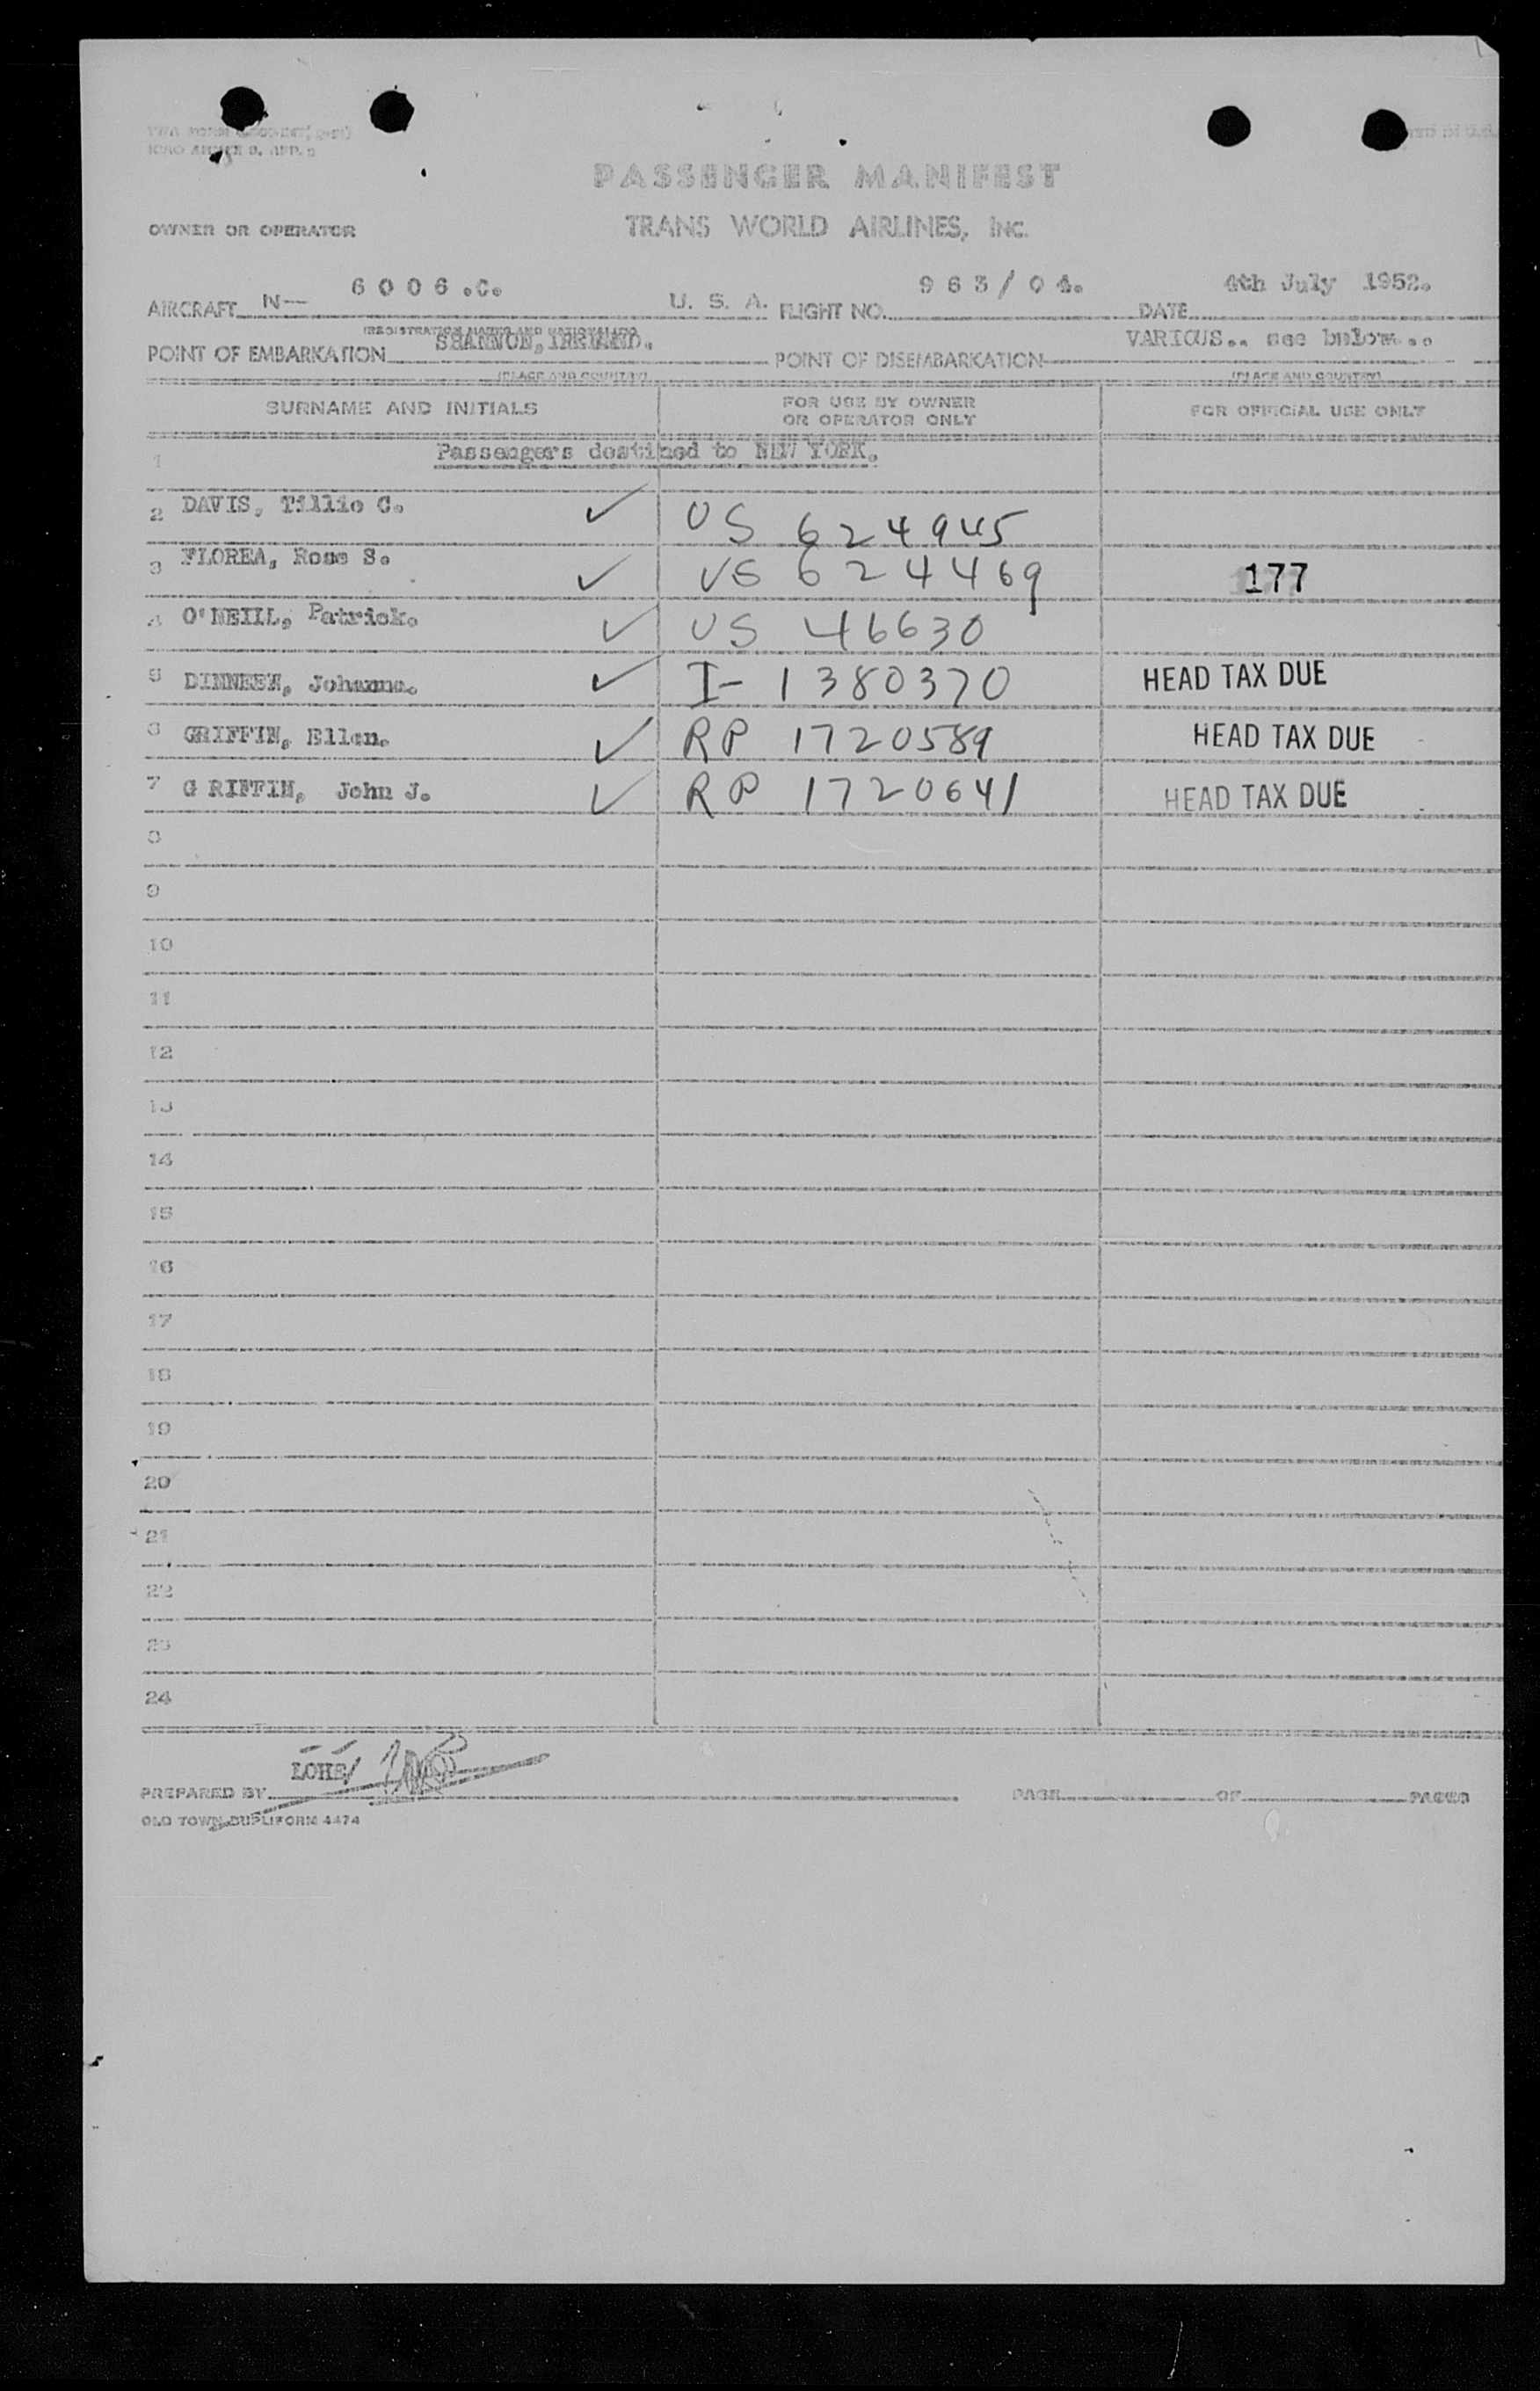 PASSENGER MANIFEST
OWNER OR OPERATOR TRANS WORLD AIRLINES, INC.
AIRCRAFT N— 6006.C. U. S. A. FLIGHT NO. 963/04. DATE 4th July 1952.
(REGISTRATION MARKS AND NATIONALITY)
POINT OF EMBARKATION SHANNON, IRELAND. POINT OF DISEMBARKATION VARIOUS.. see below...
(PLACE AND COUNTRY) (PLACE AND COUNTRY)
SURNAME AND INITIALS FOR USE BY OWNER OR OPERATOR ONLY FOR OFFICIAL USE ONLY
1 Passengers destined to NEW YORK.
2 DAVIS, Tillie C. ✓ US 624945
3 FLOREA, Rose S. ✓ US 624469 177
4 O'NEILL, Patrick. ✓ US 46630
5 DINNEEN, Johanna. ✓ I- 1380370 HEAD TAX DUE
6 GRIFFIN, Ellen. ✓ RP 1720589 HEAD TAX DUE
7 G RIFFIN, John J. ✓ RP 1720641 HEAD TAX DUE
8
9
10
11
12
13
14
15
16
17
18
19
20
21
22
23
24
PREPARED BY LOHE/
PAGE OF PAGES
OLD TOWN DUPLIFORM 4474